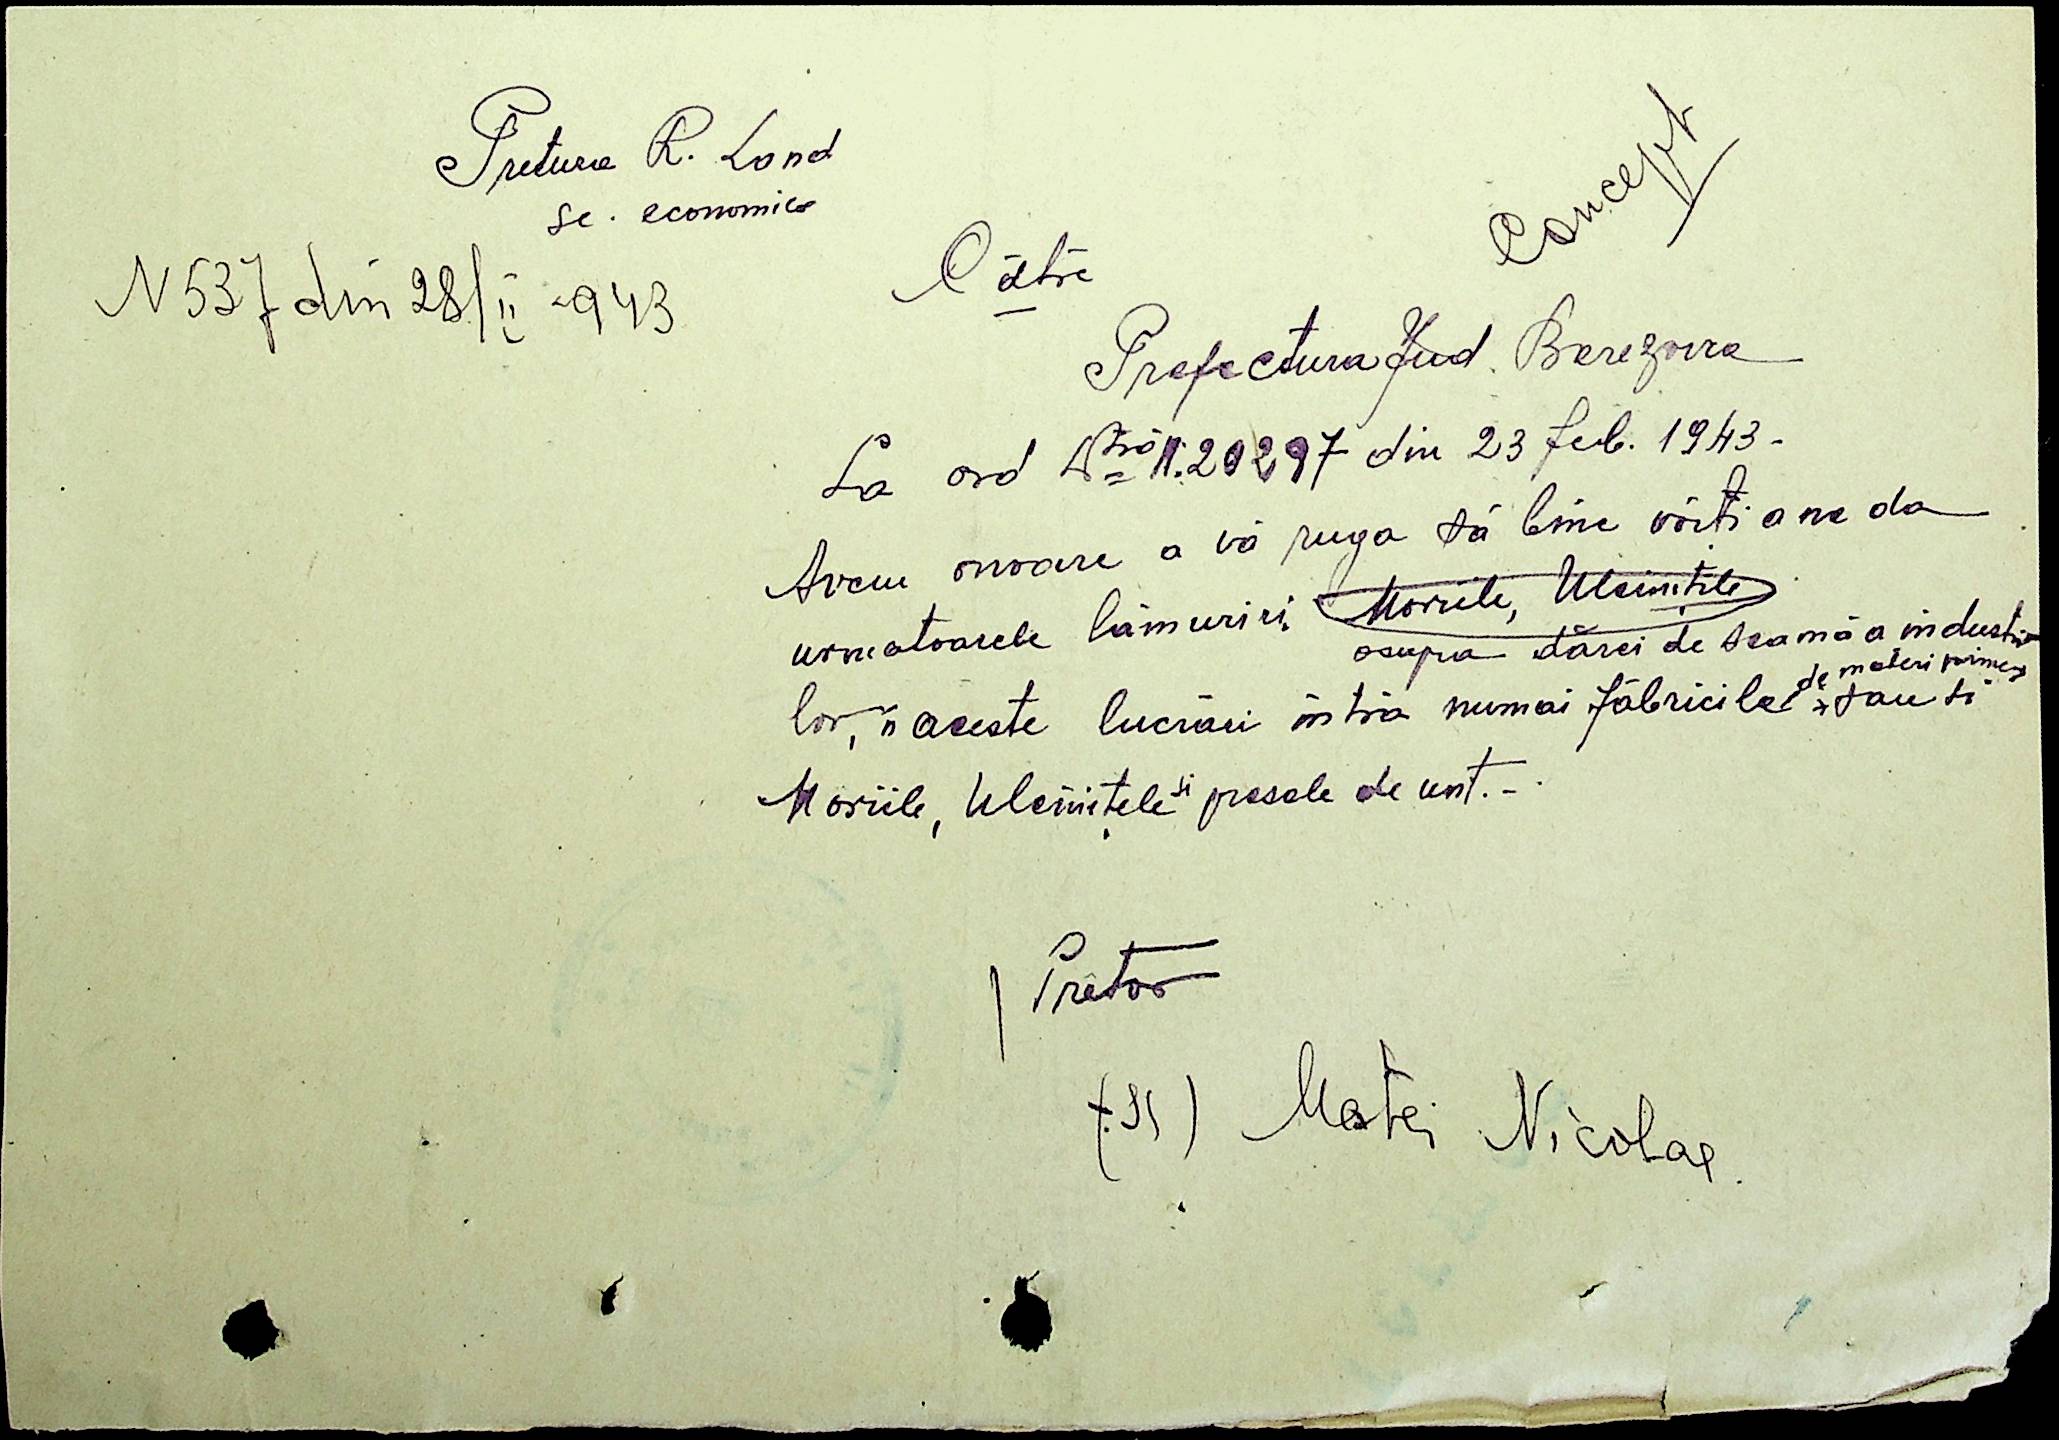 Pretura R. Land
se. economica
Concept
N 537 din 28/II -943
Către
Prefectura Jud. Berezovca
La ord Dvtră N. 20297 din 23 feb. 1943-
Avem onoare a vă ruga să bine voiți a ne da
urmatoarele lămuriri, Moriile, Uleinițile
asupra dărei de seamă a industrii
lor, în aceste lucrări intră numai fabricile de materi prime sau și
Moriile, Uleinițele și presele de unt.-
Pretor
(ss) Matei Nicolae